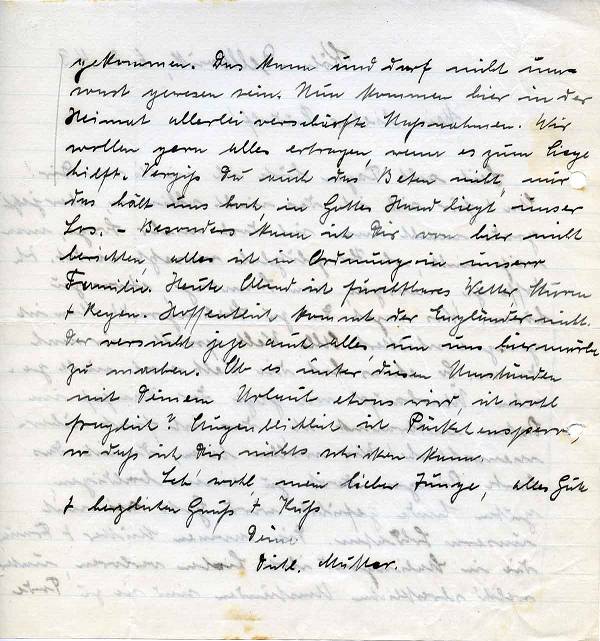 gekommen. Das kann und darf nicht um-
sonst gewesen sein. Nun kommen hier in der
Heimat allerlei verschärfte Maßnahmen. Wir
wollen gern alles ertragen, wenn es zum Siege
hilft. Vergiß Du auch das Beten nicht, nur
das hält uns hoch, in Gottes Hand liegt unser
Los. – Besonders kann ich Dir von hier nicht
berichten, alles ist in Ordnung in unserer
Familie. Heute Abend ist furchtbares Wetter Sturm
+ Regen. Hoffentlich kommt der Engländer nicht.
Der versucht jetzt auch alles, um uns hier mürbe
zu machen. Ob es unter diesen Umständen
mit Deinem Urlaub etwas wird, ist wohl
fraglich? Augenblicklich ist Päckchensperre,
so daß ich Dir nichts schicken kann.
Leb' wohl, mein lieber Junge, alles Gute
+ herzlichen Gruß + Kuß
Deine
Mutter.